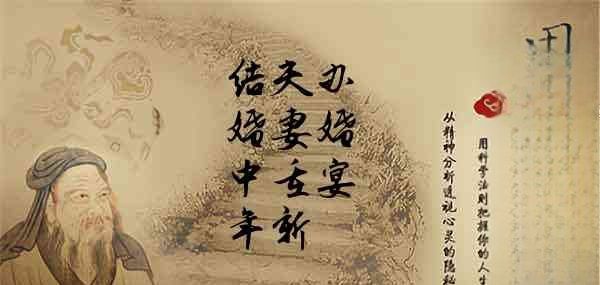 结婚中年
夫妻重新
办婚宴
用科学法则把握你的人生
从精神分析透视心灵的隐秘